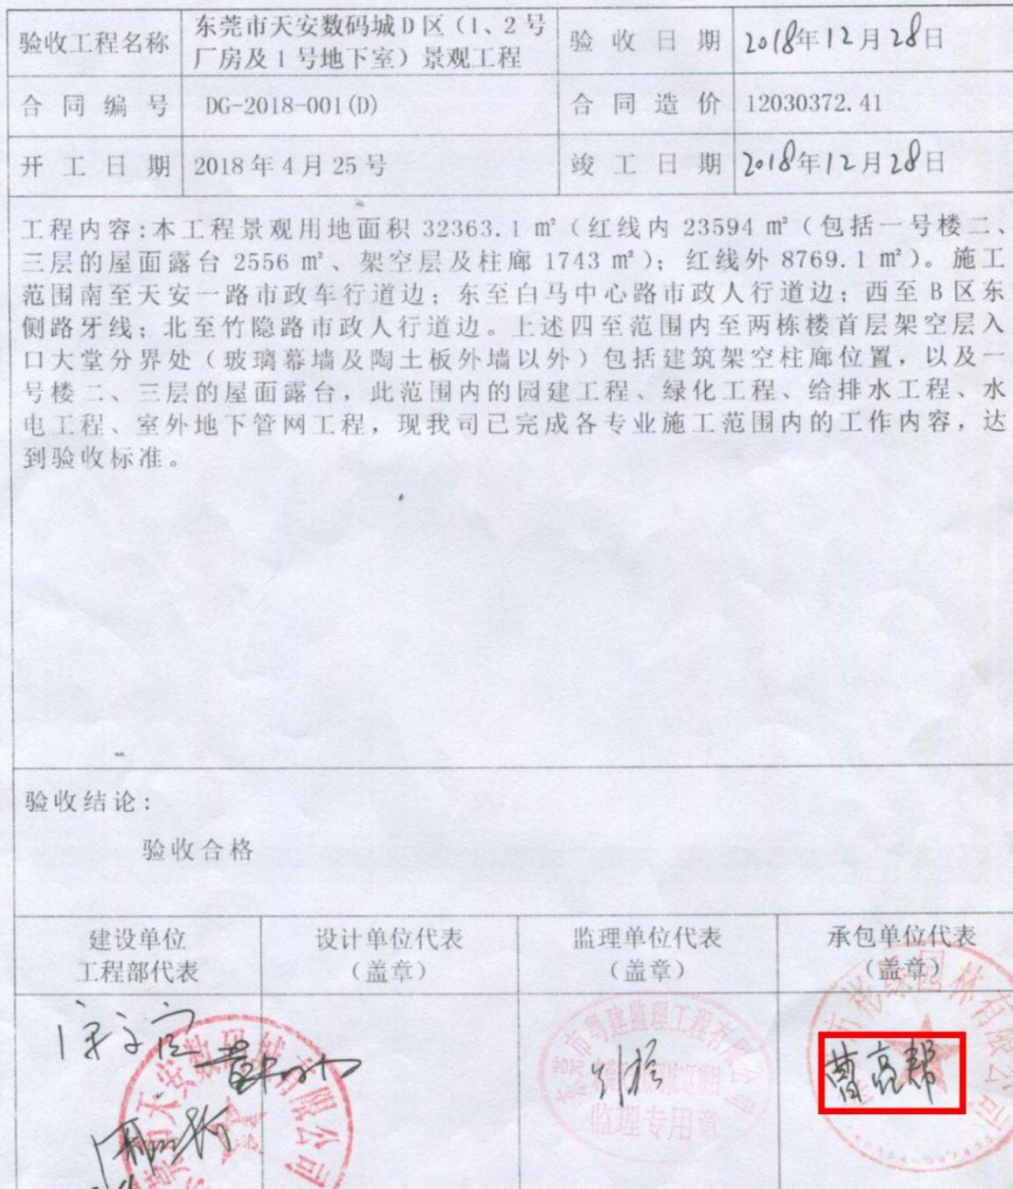 验收工程名称
东莞市天安数码城D区(1、2号
厂房及1号地下室)景观工程
验收日期
2018年12月28日
合同编号
DG-2018-001(D)
合同造价
12030372.41
开工日期
2018年4月25号
竣工日期
2018年12月28日
工程内容:本工程景观用地面积 32363.1 ㎡(红线内 23594 ㎡(包括一号楼二、
三层的屋面露台 2556 ㎡、架空层及柱廊 1743 ㎡);红线外 8769.1 ㎡)。施工
范围南至天安一路市政车行道边;东至白马中心路市政人行道边;西至 B 区东
侧路牙线;北至竹隐路市政人行道边。上述四至范围内至两栋楼首层架空层入
口大堂分界处(玻璃幕墙及陶土板外墙以外)包括建筑架空柱廊位置,以及一
号楼二、三层的屋面露台,此范围内的园建工程、绿化工程、给排水工程、水
电工程、室外地下管网工程,现我司已完成各专业施工范围内的工作内容,达
到验收标准。
验收结论:
验收合格
建设单位
工程部代表
设计单位代表
(盖章)
监理单位代表
(盖章)
承包单位代表
(盖章)
东莞市粤建监理工程有限公司
监理专用章
曹亮帮